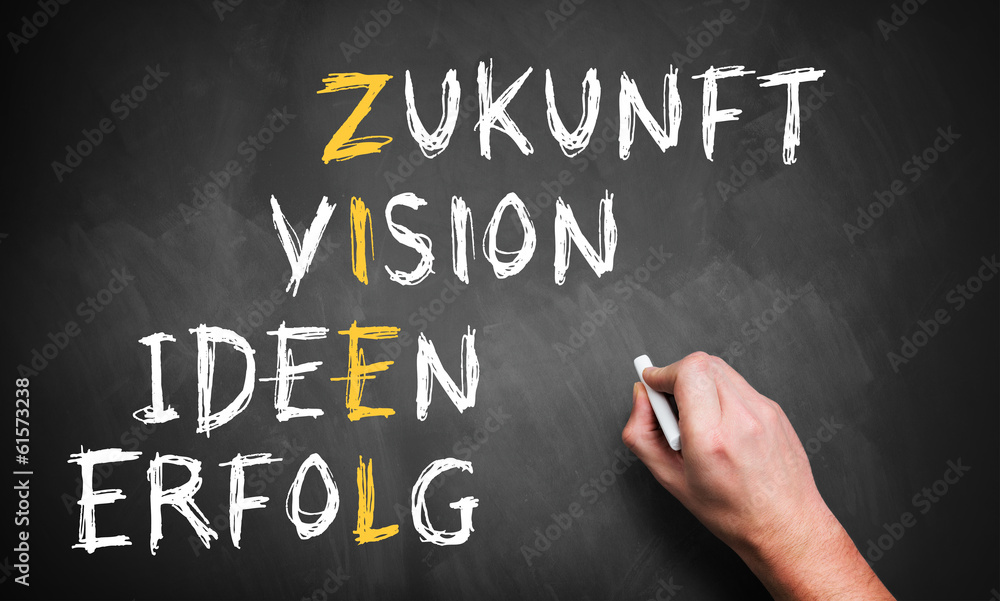 ZUKUNFT
VISION
IDEEN
ERFOLG
Adobe Stock | #61573238